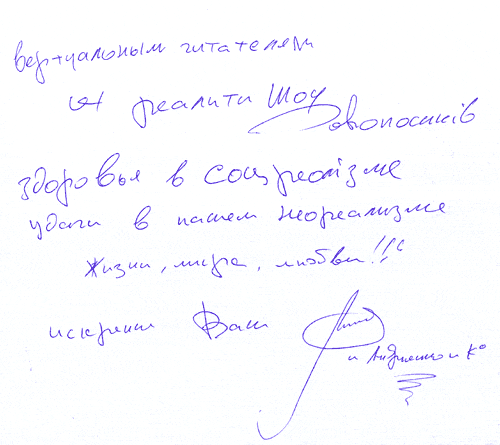 вертуальным читателям
от реалити шоу
здоровья в соцреалізме
удачи в нашем неореализме
жизни, мира, любви!!!
искренне Ваш
и Ко